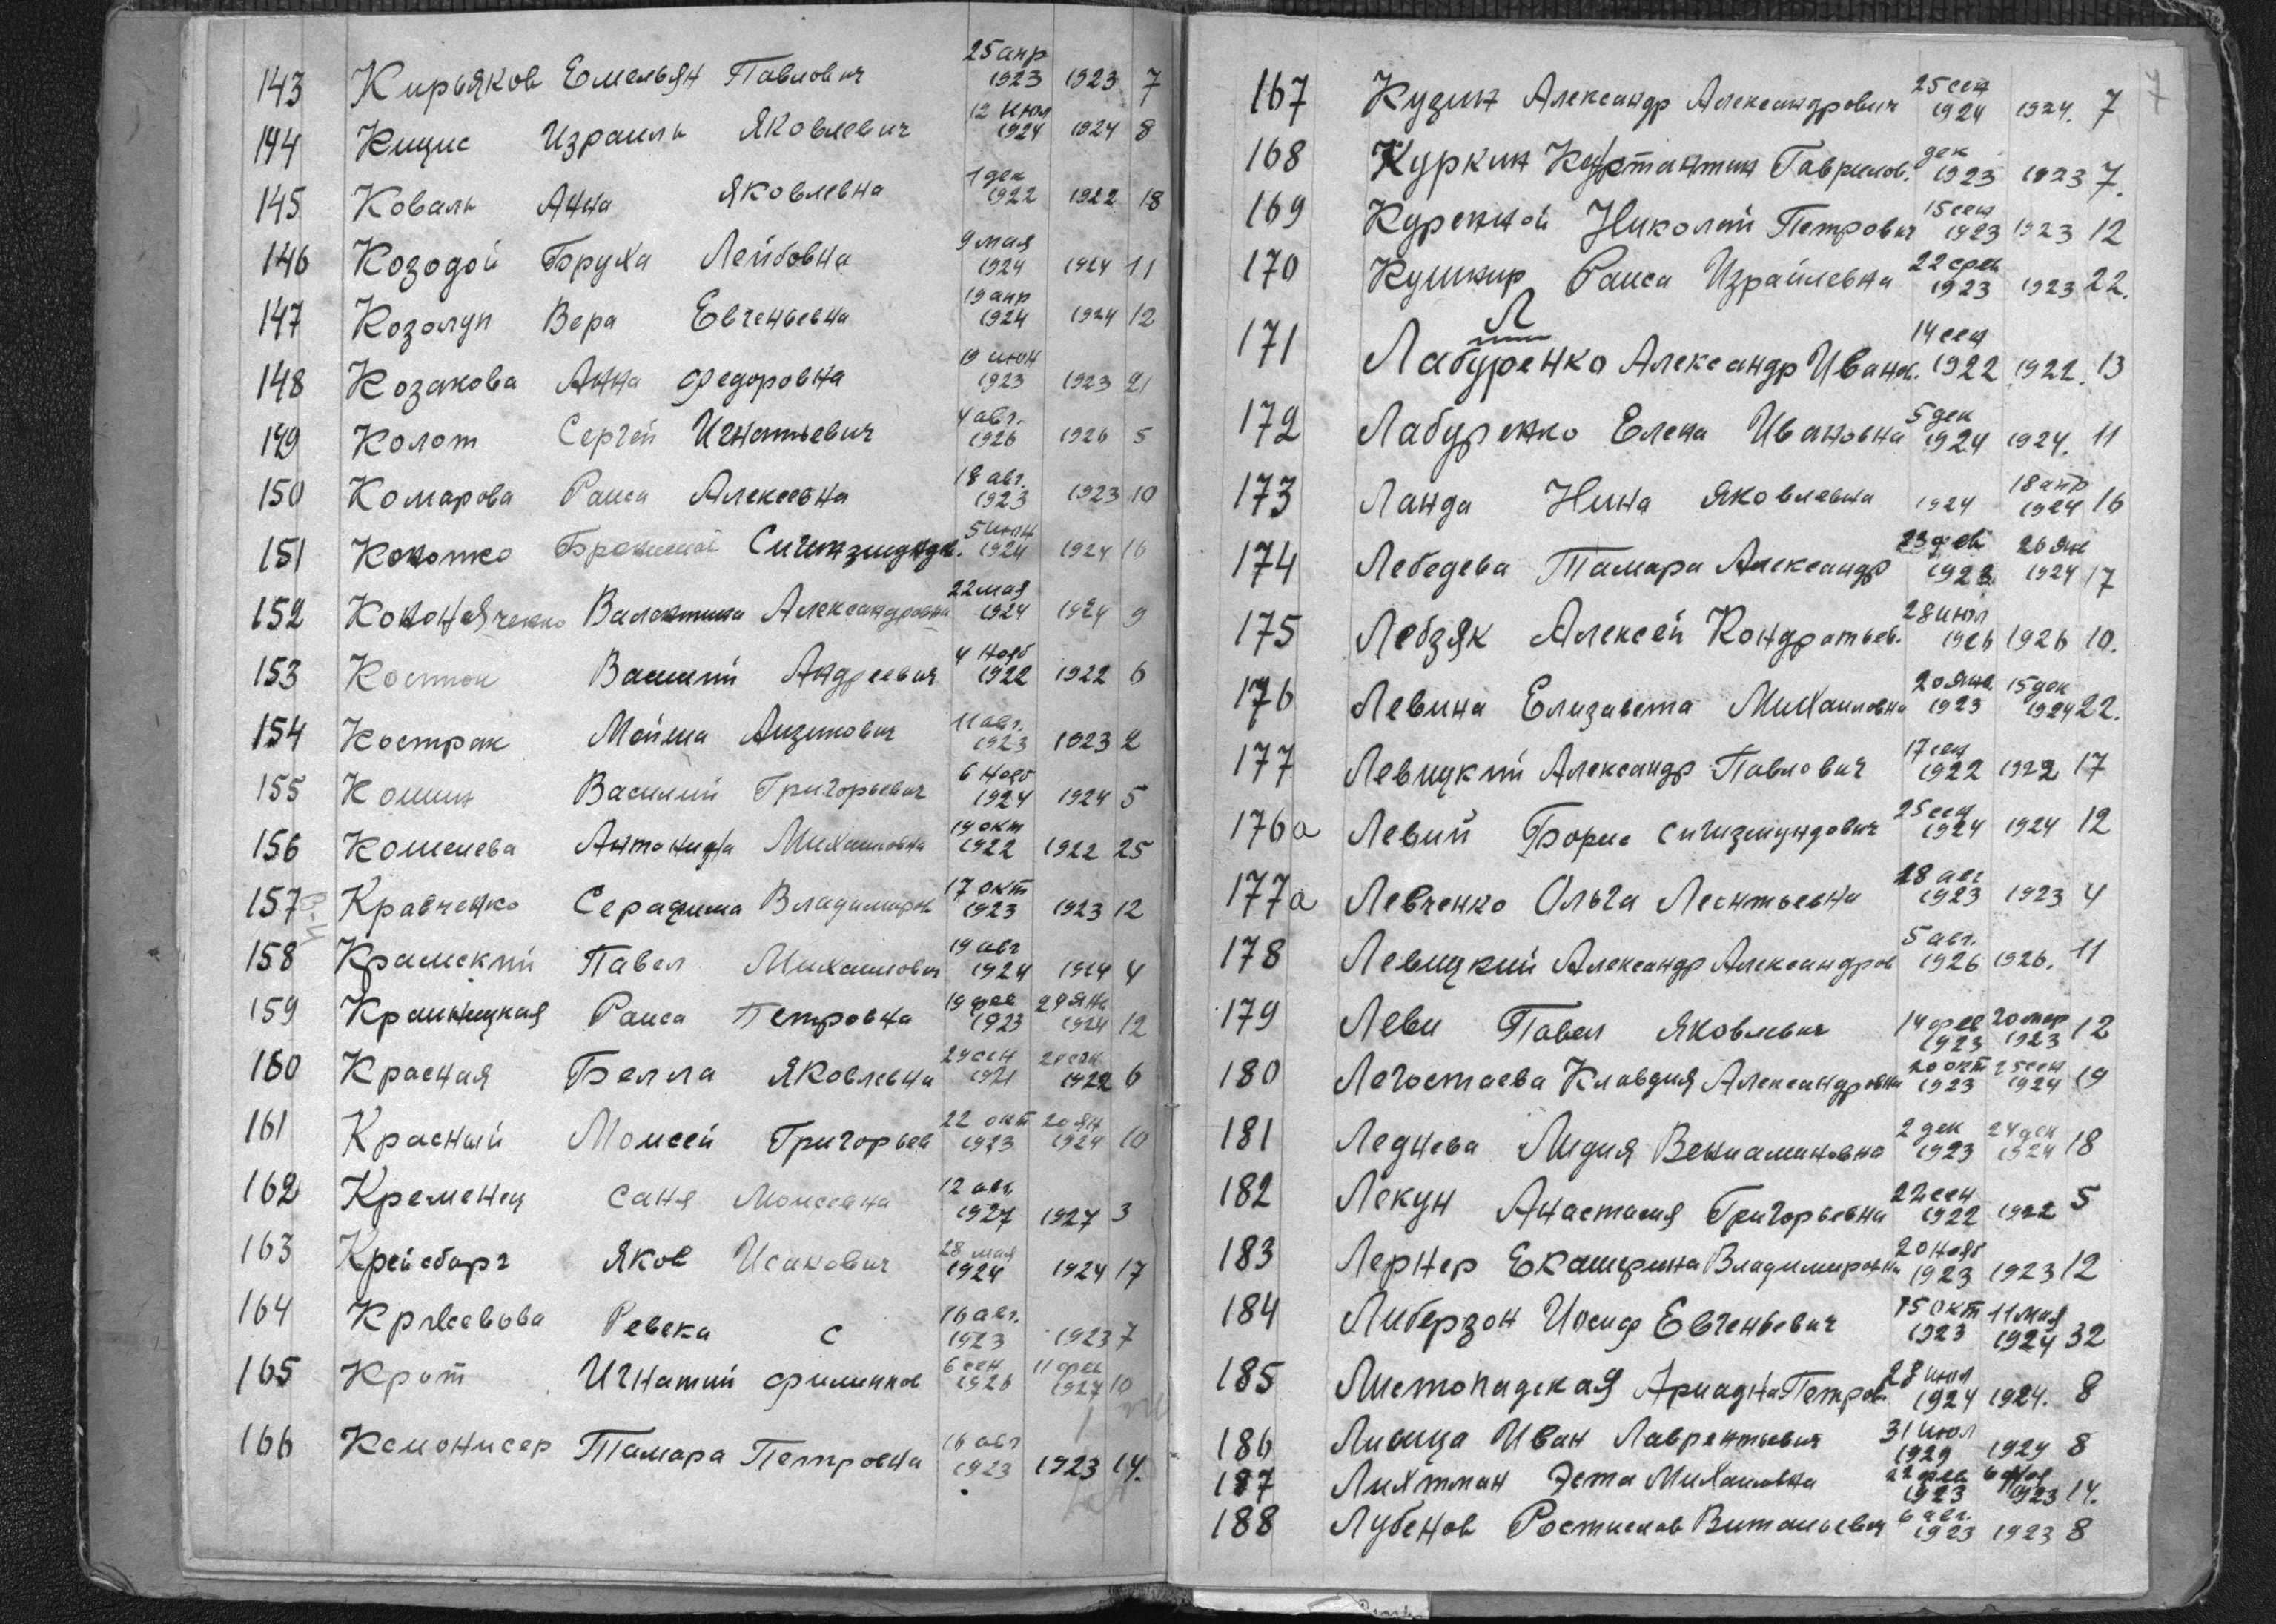 143 Кирьяков Емельян Павлович 25 апр 1923 1923 7
144 Кицис Израиль Яковлевич 12 июл 1924 1924 8
145 Коваль Анна Яковлевна 1 дек 1922 1922 18
146 Козодой Бруха Лейбовна 9 мая 1924 1924 11
147 Козолуп Вера Евгеньевна 19 апр 1924 1924 12
148 Козакова Анна Федоровна 19 июн 1923 1923 21
149 Колот Сергей Игнатьевич 4 авг. 1926 1926 5
150 Комарова Раиса Алексеевна 18 авг. 1923 1923 10
151 5 июн 1924 1924 16
152 Валентина Александровна 22 мая 1924 1924 9
153 Костюк Василий Андреевич 4 нояб 1922 1922 6
154 Костран Мойша 11 авг. 1923 1923 2
155 Кошин Василий Григорьевич 6 нояб 1924 1924 5
156 Кошелева Антонина Михайловна 19 окт 1922 1922 25
157 Кравченко Серафима Владимиров 17 окт 1923 1923 12
158 Крамский Павел Михайлович 19 авг 1924 1924 4
159 Краиницкая Раиса Петровна 19 фев 1923 29 янв 1924 12
160 Красная Белла Яковлевна 1922 6
161 Красный Моисей Григорьев 22 окт 1923 20 ян 1924 10
162 Кременец Саня Моисеевна 12 авг. 1927 1927 3
163 Крейсберг Яков Исакович 28 мая 1924 1924 17
164 Кржевова Ревека С 16 авг. 1923 1923 7
165 Крот Игнатий Филиппов 6 сен 1926 11 фев 1927 10
166 Ксмонисер Тамара Петровна 16 авг 1923 1923 14.
7
167 Кузин Александр Александрович 25 сен 1924 1924. 7
168 Куркин Константин Гаврилов. дек 1923 1923 7.
169 Куренной Николай Петрович 15 сен 1923 1923 12
170 Кушнир Раиса Израйлевна 22 1923 1923 22.
Л
171 Лабуренко Александр Иванов. 14 сен 1922 1922. 13
172 Лабуренко Елена Ивановна 5 дек 1924 1924. 11
173 Ланда Нина Яковлевна 1924 18 апр 1924 16
174 Лебедева Тамара Александр 23 фев 1923 26 янв 1924 17
175 Лебзяк Алексей Кондратьев. 28 июл 1926 1926 10.
176 Левина Елизавета Михайловна 20 янв 1923 15 дек 1924 22.
177 Левицкий Александр Павлович 17 сен 1922 1922 17
176а Левий Борис Сигизмундович 25 сен 1924 1924 12
177а Левченко Ольга Леонтьевна 28 авг 1923 1923 4
178 Левицкий Александр Александров 5 авг. 1926 1926. 11
179 Леви Павел Яковлевич 14 фев 1923 20 мар 1923 12
180 Легостаева Клавдия Александровна 20 окт 1923 25 сен 1924 19
181 Леднева Лидия Вениаминовна 2 дек 1923 24 дек 1924 18
182 Лекун Анастасия Григорьевна 22 сен 1922 1922 5
183 Лернер Екатерина Владимировна 20 нояб 1923 1923 12
184 Либерзон Иосиф Евгеньевич 15 окт 1923 11 мая 1924 32
185 Листопадская Ариадна Петров. 28 июл 1924 1924. 8
186 Лисица Иван Лаврентьевич 31 июл 1929 1929 8
187 Лихтман Эста Михайловна 22 фев 1923 1923 14.
188 Лубенов Ростислав Витальевич 6 авг. 1923 1923 8